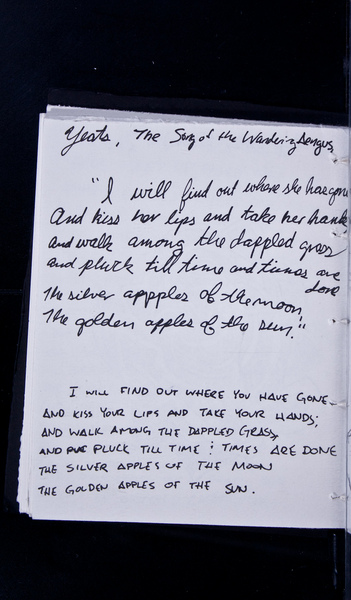 Yeats, The Song of the Wandering Aengus,
"I will find out where she has gone
And kiss her lips and take her hands
and walk among the dappled grass
and pluck till time and times are
done
The silver appples of the moon,
The golden apples of the sun."
I WILL FIND OUT WHERE YOU HAVE GONE
AND KISS YOUR LIPS AND TAKE YOUR HANDS;
AND WALK AMONG THE DAPPLED GRASS,
AND PLUCK TILL TIME : TIMES ARE DONE
THE SILVER APPLES OF THE MOON
THE GOLDEN APPLES OF THE SUN.